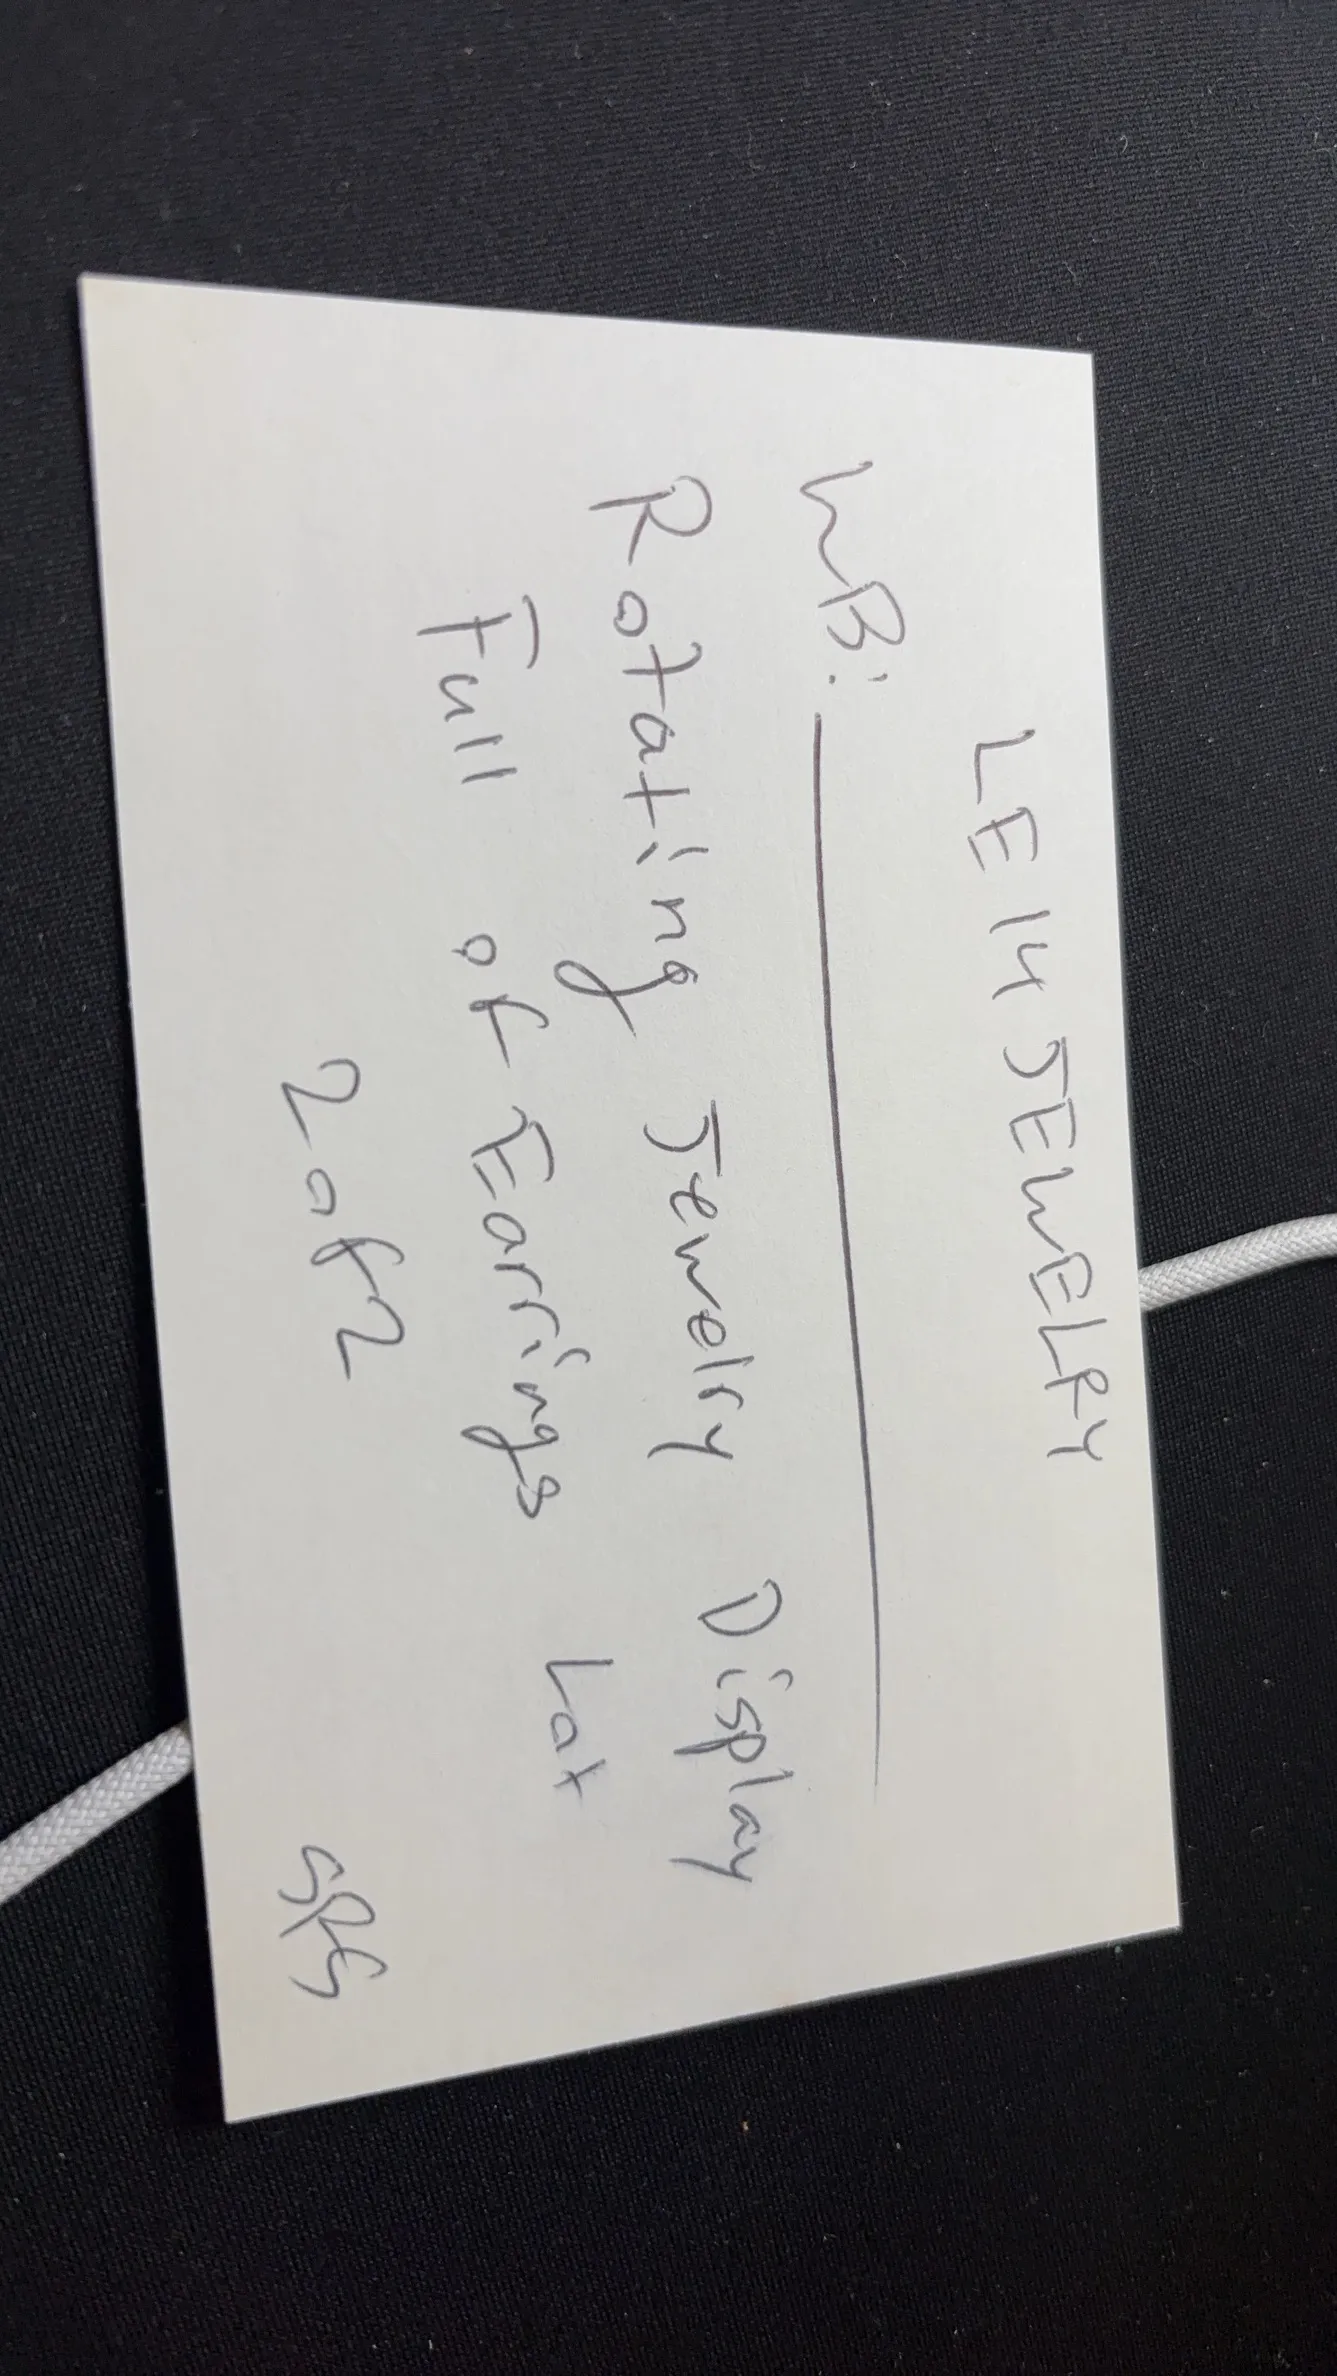 LE14 JEWELRY
WB:
Rotating Jewelry Display
Full of Earrings Lot
2 of 2
SPG